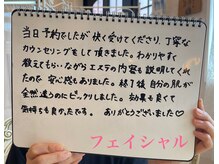 当日予約でしたが快く受けてくださり、丁寧な
カウンセリングをして頂きました。わかりやすく
教えてもらいながらエステの内容も説明してくれ
たので安心感もありました。終了後自分の肌が
全然違うのにビックリしました。効果も良くて
気持ちも良かったです。ありがとうございました♡
フェイシャル